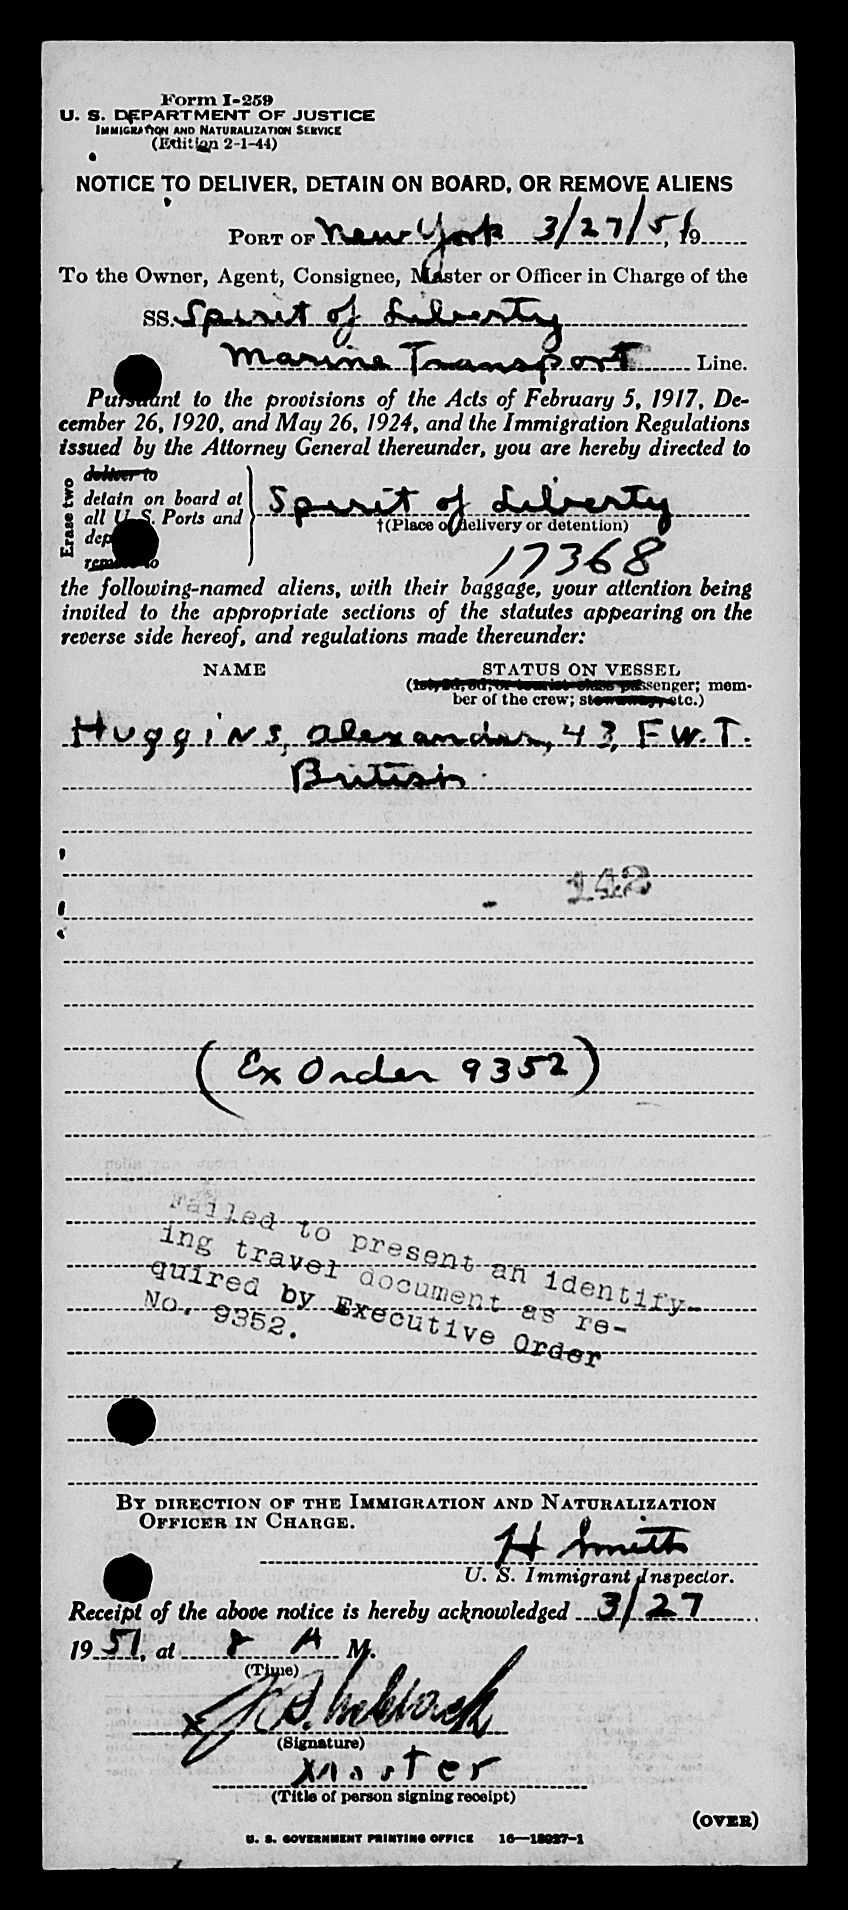 Form I-259
U. S. DEPARTMENT OF JUSTICE
IMMIGRATION AND NATURALIZATION SERVICE
(Edition 2-1-44)
NOTICE TO DELIVER, DETAIN ON BOARD, OR REMOVE ALIENS
PORT OF New York 3/27/51, 19
To the Owner, Agent, Consignee, Master or Officer in Charge of the
SS. Spirit of Liberty
Marine Transport Line.
Pursuant to the provisions of the Acts of February 5, 1917, De-
cember 26, 1920, and May 26, 1924, and the Immigration Regulations
issued by the Attorney General thereunder, you are hereby directed to
Erase two
deliver to
detain on board at
all U. S. Ports and
dep
remove to
Spirit of Liberty
†(Place of delivery or detention)
17368
the following-named aliens, with their baggage, your attention being
invited to the appropriate sections of the statutes appearing on the
reverse side hereof, and regulations made thereunder:
NAME STATUS ON VESSEL
(1st, 2d, 3d, or tourist class passenger; mem-
ber of the crew; stowaway, etc.)
Huggins, Alexander, 43, F.W.T.
British
142
(Ex Order 9352)
Failed to present an identify-
ing travel document as re-
quired by Executive Order
No. 9352.
BY DIRECTION OF THE IMMIGRATION AND NATURALIZATION
OFFICER IN CHARGE.
H Smith
U. S. Immigrant Inspector.
Receipt of the above notice is hereby acknowledged 3/27
1951, at 8 A M.
(Time)
X
(Signature)
Master
(Title of person signing receipt)
(OVER)
U. S. GOVERNMENT PRINTING OFFICE 16—18027-1